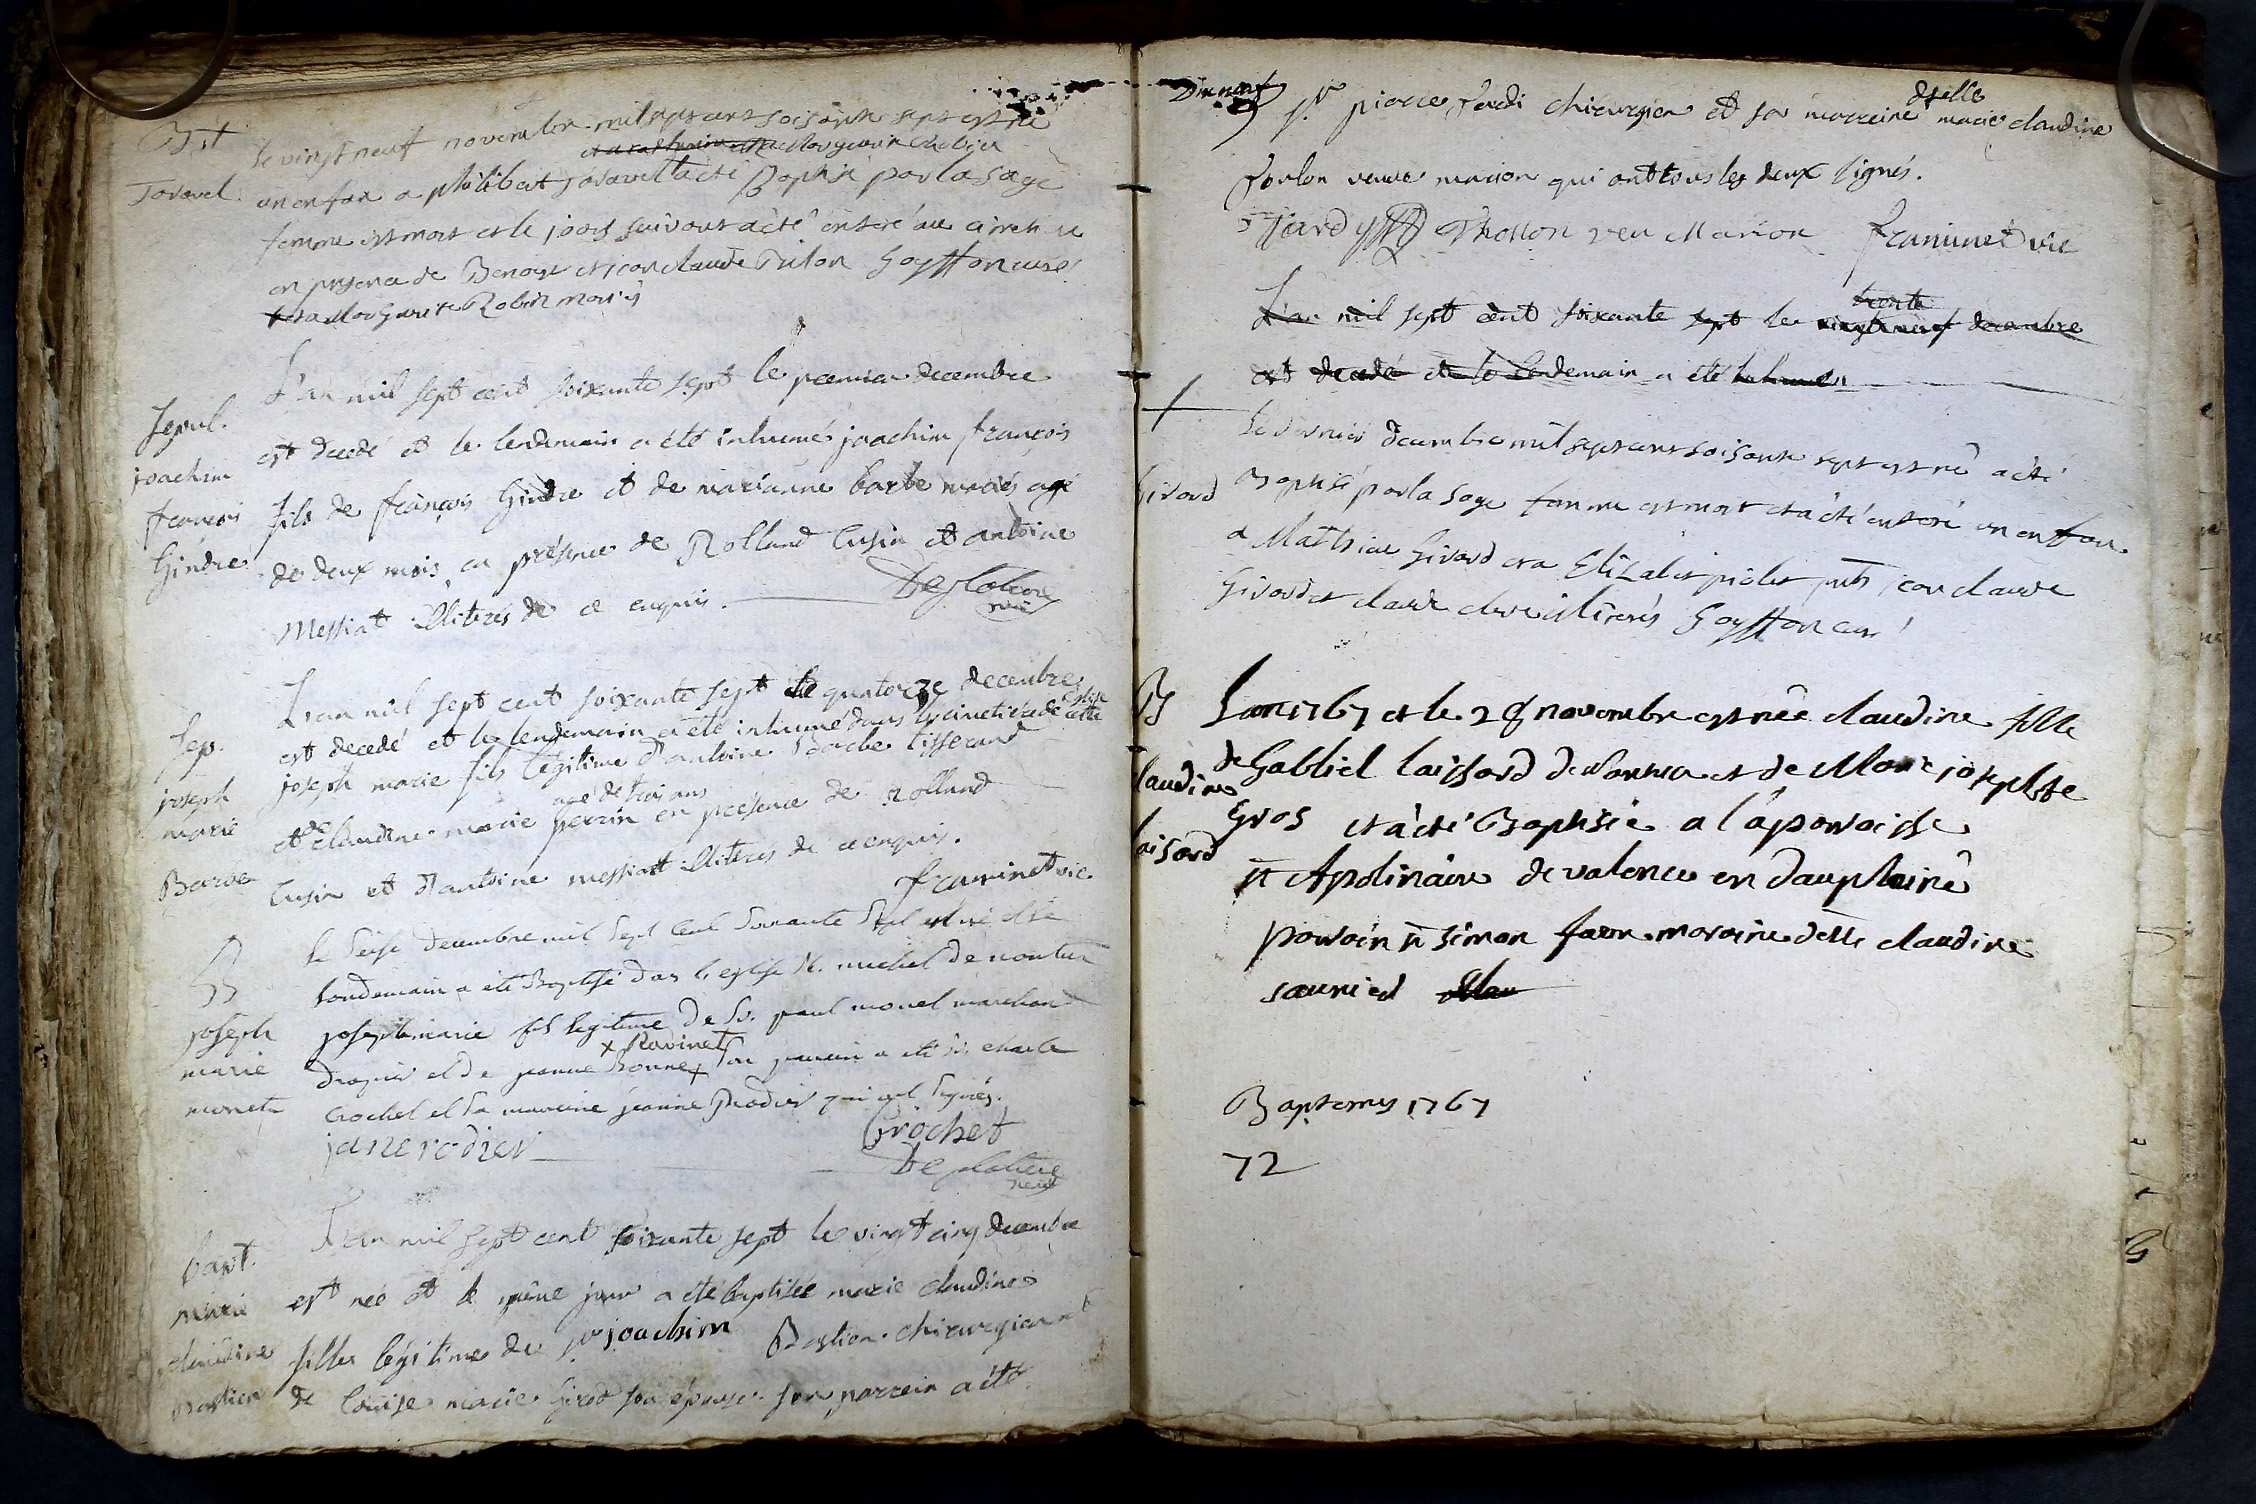 B et +
Jaravel
le vingt neuf novembre mil sept cent soisante sept est né
un enfan a philibert Jaravel a été Baptisé par la sage
femme est mort et le jour suivant a été enteré au cimetiere
en presence de Benoist et jean claude Pilon Goyffon curé
et a Margarite Robin mariés
Sepul.
joachim
françois
Gindre
L'an mil sept cent soixante sept le premier decembre
est decedé et le lendemain a été inhumé joachim françois
fils de françois Gindre et de marianne barbe mariés agé
de deux mois, en présence de Rolland Cusin et antoine
Messiat illiterés de ce enquis.
Sep.
joseph
marie
Barbe
L'an mil sept cent soixante sept le quatorze decembre
est decedé et le lendemain a été inhumé dans le cimetiere de cette église
joseph marie fils légitime d'antoine barbe tisserand
et de claudine marie perrin agé de trois ans en présence de Rolland
Cusin et d'antoine messiat illiterés de ce enquis.
framinet vic
B
joseph
marie
monet
le seise decembre mil sept cent soixante sept est né et le
lendemain a été Baptisé dans l'eglise St. michel de nantua
joseph marie fils legitime de Sr. paul monet marchand
drapier et de jeanne Bonne x Ravinet x son parrain a été Sr. charle
Crochet et sa marreine jeanne Rodier qui ont signés.
jane rodier
Crochet
bapt.
marie
claudine
Bastien
L'an mil sept cent soixante sept le vingt cinq decembre
est née et le même jour a été baptisée marie claudine
fille légitime de sr joachim Bastien chirurgien et
de louise marie Girod son épouse. son parrein a été
sr. pierre Jardi chirurgien et sa marreine dselle marie claudine
Thoulon veuve marion qui ont tous les deux signés.
Jardy Thollon veu Marion framinet vic
L'an mil sept cent soixante sept le vingt neuf trente decembre
est decedé et le lendemain a été inhumé
+
Girard
Le dernier decembre mil sept cent soisante sept est né a été
Baptisé par la sage femme est mort et a été enteré un enffan
a Mathieu Girard et a Elizabet piolet pnts jean claude
Girard et claude clerc illiterés Goyffon curé
B
claudine
laisard
L'an 1767 et le 28 novembre est née claudine fille
de Gabliel laissard de Nantua et de Marie josephte
Gros et a été Baptisée a la paroisse
st Apolinaire de valence en dauphiné
parain sr simon faure maraine delle claudine
saunier
Baptemes 1767
72